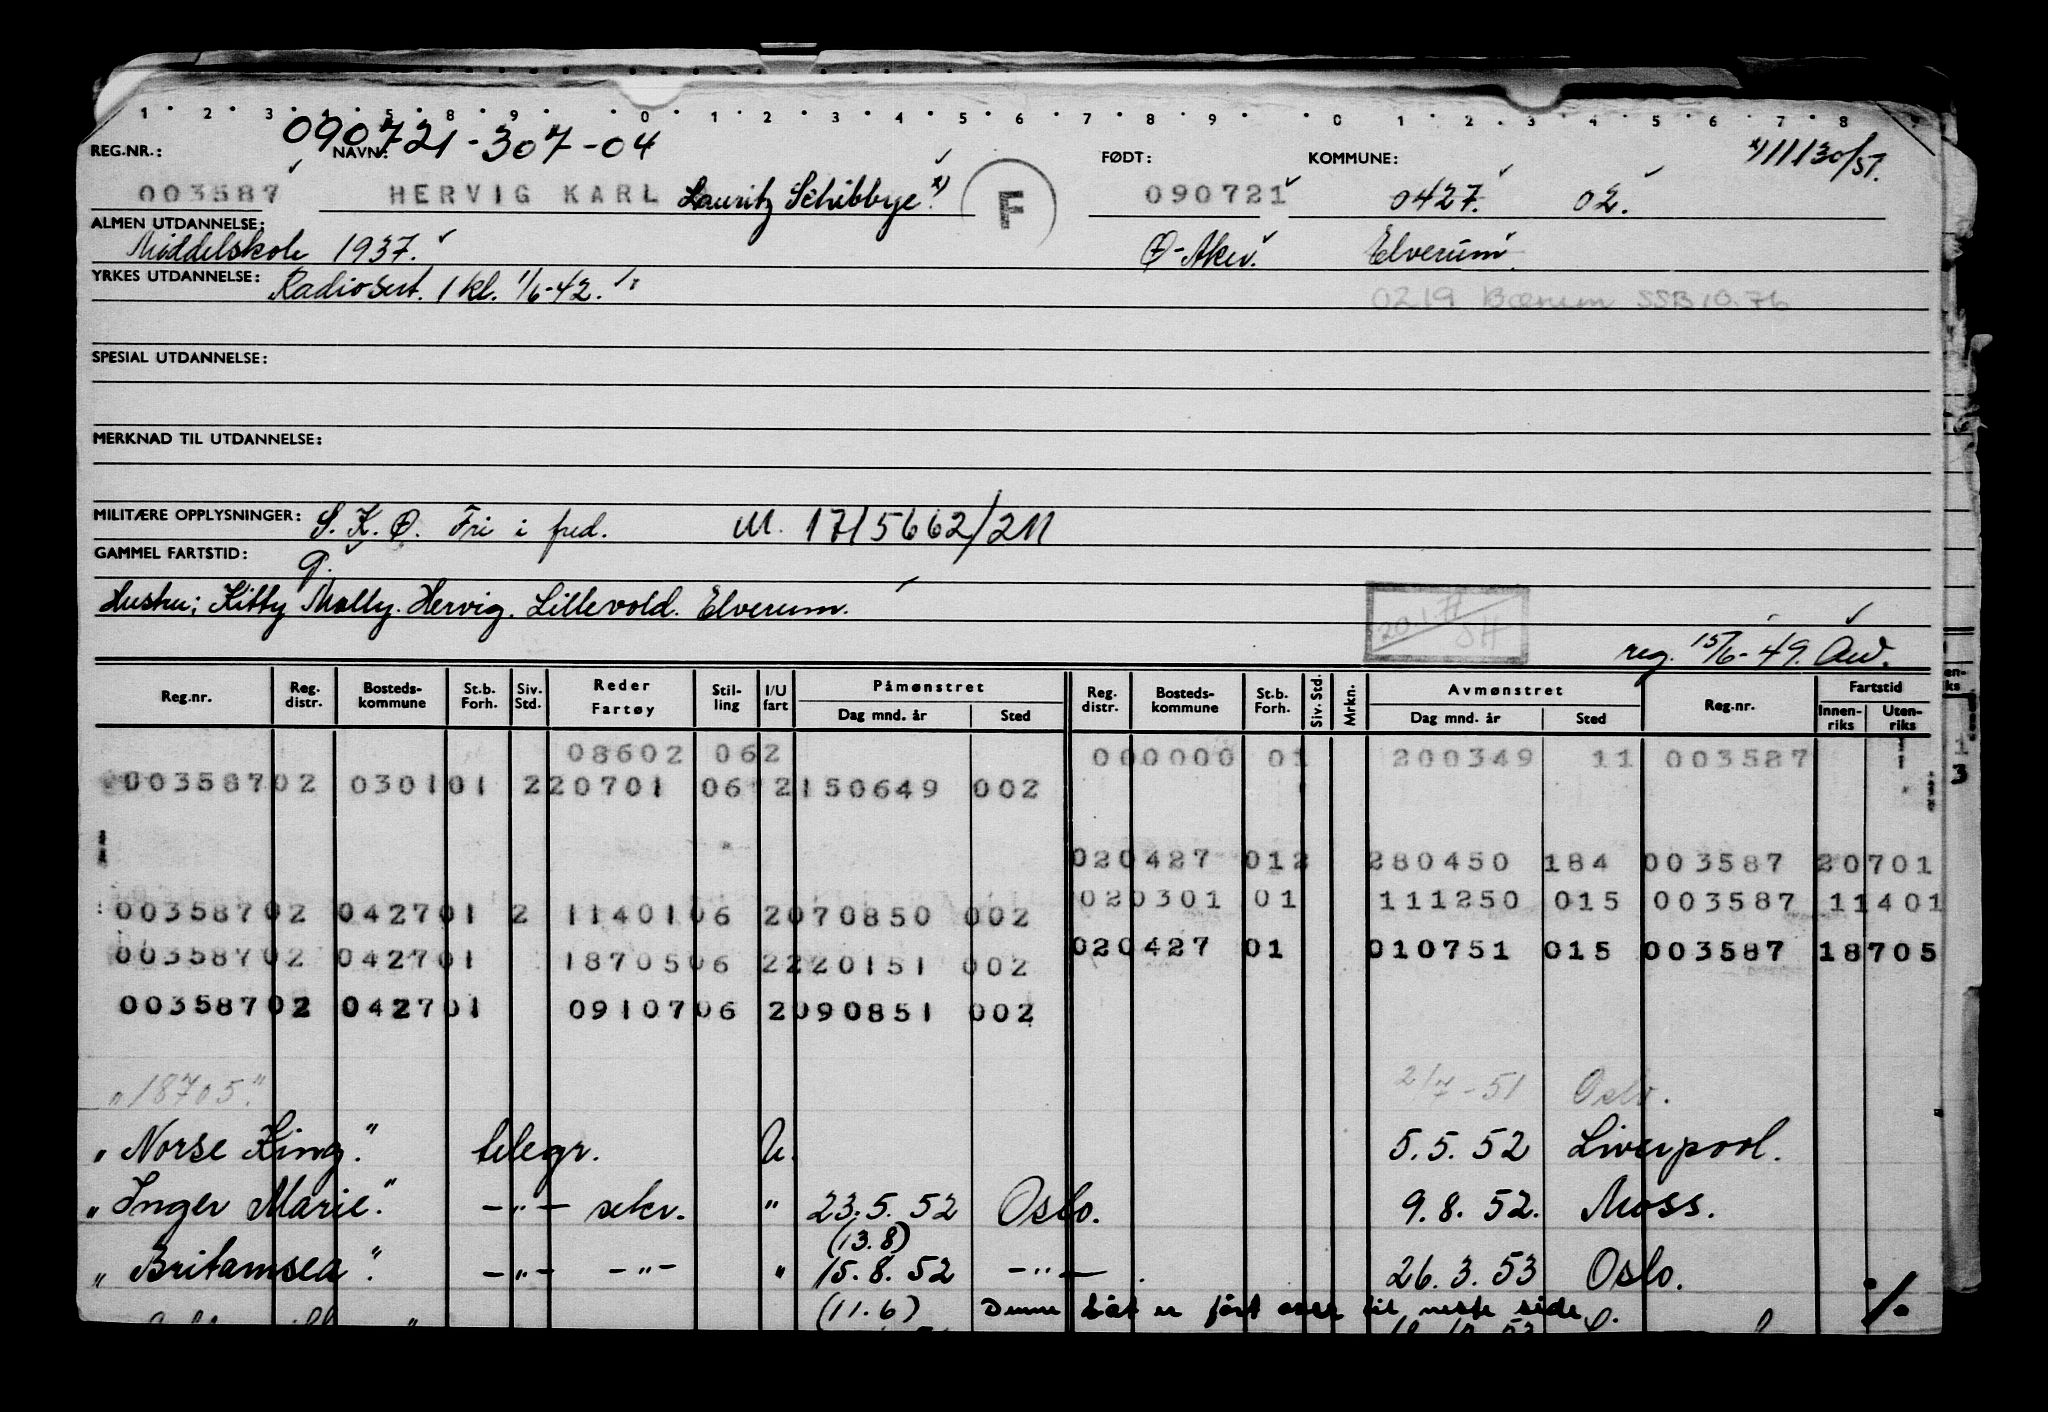 1 2 3 4 5 8 9 0 1 2 3 4 5 6 7 8 9 0 1 2 3 4 5 6 7 8
090721-307-04
REG.NR.: NAVN: FØDT: KOMMUNE: 11130/51.
003587 HERVIG KARL Lauritz Schibbye x) F 090721 0427. 02.
ALMEN UTDANNELSE: Middelskole 1937. Ø-Aker. Elverum
YRKES UTDANNELSE: Radiosert. 1 kl. 1/6-42.
0219 Bærum SSB 10.76
SPESIAL UTDANNELSE:
MERKNAD TIL UTDANNELSE:
MILITÆRE OPPLYSNINGER: S.K.Ø. Fri i fred. M. 1715662/211
GAMMEL FARTSTID: 9.
Hustru; Kitty Molly Hervig. Lillevold. Elverum.
20.1.71 SH
reg. 15/6-49. Aw.
Reg.nr. Reg. distr. Bosteds-kommune St.b. Forh. Siv. Std. Reder Fartøy Stil-ling I/U fart Påmønstret Dag mnd. år Sted Reg. distr. Bosteds-kommune St.b. Forh. Siv. Std. Mrkn. Avmønstret Dag mnd. år Sted Reg.nr. Fartstid Innen-riks Uten-riks
08602 062 000000 01 200349 11 003587
00358702 030101 220701 06 2150649 002
020427 012 280450 184 003587 20701
020301 01 111250 015 003587 11401
00358702 042701 2 1140106 2070850 002
020427 01 010751 015 003587 18705
00358702 042701 1870506 2220151 002
00358702 042701 0910706 2090851 002
"18705" 2/7-51 Oslo.
"Norse King." telegr. U. 5.5.52 Liverpool.
"Inger Marie." -"- sekr. " 23.5.52 Oslo. 9.8.52. Moss.
(13.8)
"Britamsea". -"- -"- " 15.8.52 -"- . 26.3.53 Oslo.
(11.6) Denne båt er ført over til neste side. ./.